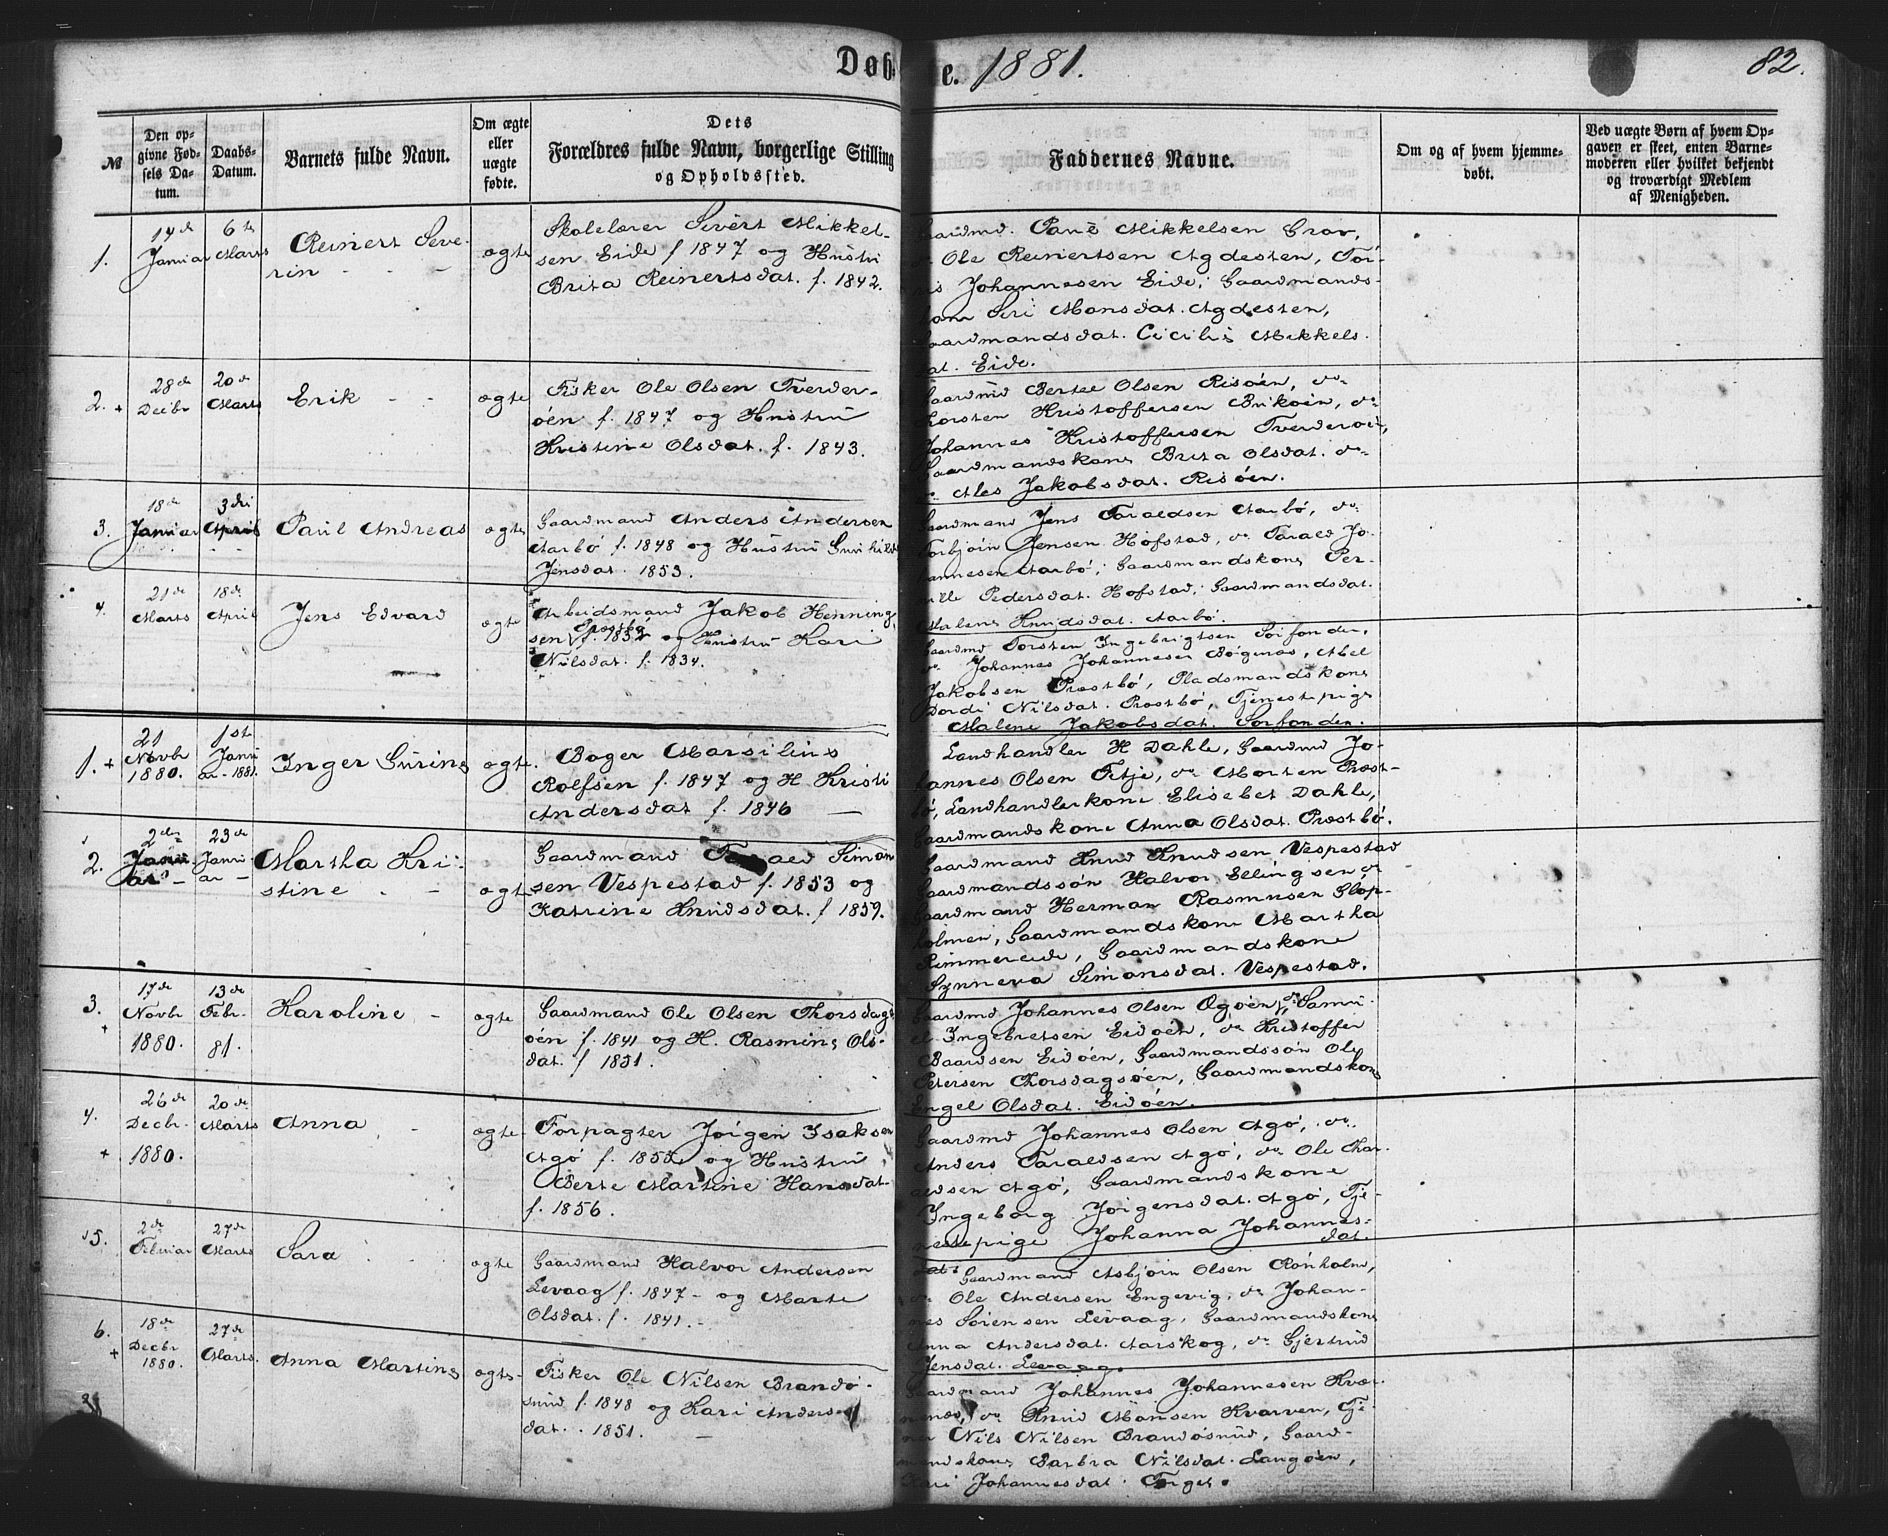 Døbte. 1881.
82.
№
Den opgivne Fødsels Datum.
Daabs-Datum.
Barnets fulde Navn.
Om ægte eller uægte fødte.
Dets Forældres fulde Navn, borgerlige Stilling og Opholdssted.
Faddernes Navne.
Om og af hvem hjemmedøbt.
Ved uægte Børn af hvem Opgaven er skeet, enten Barnemoderen eller hvilket bekjendt og troværdigt Medlem af Menigheden.
1.
14de Januar
6te Marts
Reinert Severin
ægte
Skolelærer Sivert Mikkel-
sen Eide f 1847 og Hustru
Brita Reinertsdat. f. 1842.
Gaardmd. Paul Mikkelsen Grov,
do Ole Reinertsen Agdesten, Tør-
ris Johannesen Eide; Gaardmands-
kone Siri Monsdat. Agdesten,
Gaardmandsdat. Cicilie Mikkels-
dat. Eide.
2. +
28de Decbr
20de Marts
Erik
ægte
Fisker Ole Olsen Tverder-
øen f. 1847 og Hustru
Kristine Olsdat. f. 1843.
Gaardmd Bertel Olsen Risøen, do
Torsten Kristoffersen Brikøen, do
Johannes Kristoffersen Tverderøen,
Gaardmandskone Brita Olsdat. do
do Ales Jakobsdat. Risøen.
3.
18de Januar
3die April
Paul Andreas
ægte
Gaardmand Anders Andersen
Aarbø f. 1848 og Hustru Gunhild
Jensdat. 1853.
Gaardmand Jens Taraldsen Aarbø, do
Torbjørn Jensen Hofstad, do Tarald Jo-
hannesen Aarbø; Gaardmandskone Per-
nille Pedersdat. Hofstad; Gaardmandsdat.
Malene Knudsdat. Aarbø.
4.
21de Marts
18de April
Jens Edvard
ægte
Arbeidsmand Jakob Hennings
sen Præstbø f. 1832 og Hustru Kari
Nilsdat. f. 1834.
Gaardmd Torsten Ingebrigtsen Sørfonden,
do Johannes Johannesen Bøgenæs, Abel
Jakobsen Præstbø, Pladsmandskone
Dordi Nilsdat. Præstbø, Tjenestepige
Malene Jakobsdat. Sørfonden.
1. +
21 Novbr 1880.
1ste Januar - 1881.
Inger Surine
ægte
Bager Marsilius
Rolfsen f. 1847 og H Kristi
Andersdat f. 1846
Landhandler H Dahle, Gaardmd Jo-
hannes Olsen Tetje, do Morten Præst-
bø, Landhandlerkone Elisebet Dahle,
Gaardmandskone Anna Olsdat. Præstbø.
2.
2den Januar
23de Januar
Martha Kristine
ægte
Gaardmand Tarald Simon
sen Vespestad f. 1853 og
Katrine Knudsdat. f 1859.
Gaardmand Knud Knudsen Vespestad
Gaardmandssøn Halvor Ellingsen do
Gaardmand Herman Rasmusen Glop-
holmen, Gaardmandskone Martha
Rimmereide, Gaardmandskone
Synneva Simonsdat. Vespestad.
3. +
17de Novbr 1880.
13de Febr. 81.
Karoline
ægte
Gaardmand Ole Olsen Thorsdags
øen f. 1841 og H. Rasmine Ols-
dat. f 1851.
Gaardmd Johannes Olsen Ogøen, do Samu-
el Ingebretsen Eidøen, do Kristoffer
Baardsen Eidøen, Gaardmandssøn Ole
Petersen Thorsdagsøen, Gaardmandskone
Engel Olsdat. Eidøen.
4. +
26de Decbr. 1880.
20de Marts
Anna
ægte
Forpagter Jørgen Isaksen
Agø f. 1855 og Hustru
Berte Martine Hansdat
f. 1856.
Gaardmd Johannes Olsen Agø, do
Anders Taraldsen Agø, do Ole Thar-
aldsen Agø, Gaardmandskone
Ingeborg Jørgensdat. Agø, Tje-
nestepige Johanna Johannes-
dat.
5.
2de Februar
27de Marts
Sara
ægte
Gaardmand Halvor Andersen
Levaag f. 1847 - og Marte
Olsdat. f. 1841.
Gaardmand Asbjørn Olsen Rønholm,
do Ole Andersen Engevig, do Johan-
nes Sørensen Levaag, Gaardmandskone
Anna Andersdat. Aarskog, do Gjertrud
Jensdat. Levaag.
6. +
18de Decbr 1880.
27de Marts.
Anna Martine
ægte
Fisker Ole Nilsen Brandø-
sund f. 1848 og Kari Anders-
dat. . 1851.
Gaardmand Johannes Johannesen Kvær-
nenæs, do Knud Mansen Kvarven, Tje-
ner Nils Nilsen Brandøsund, Gaard-
mandskone Barbra Nilsdat. Langøen,
Kari Johannesdat.